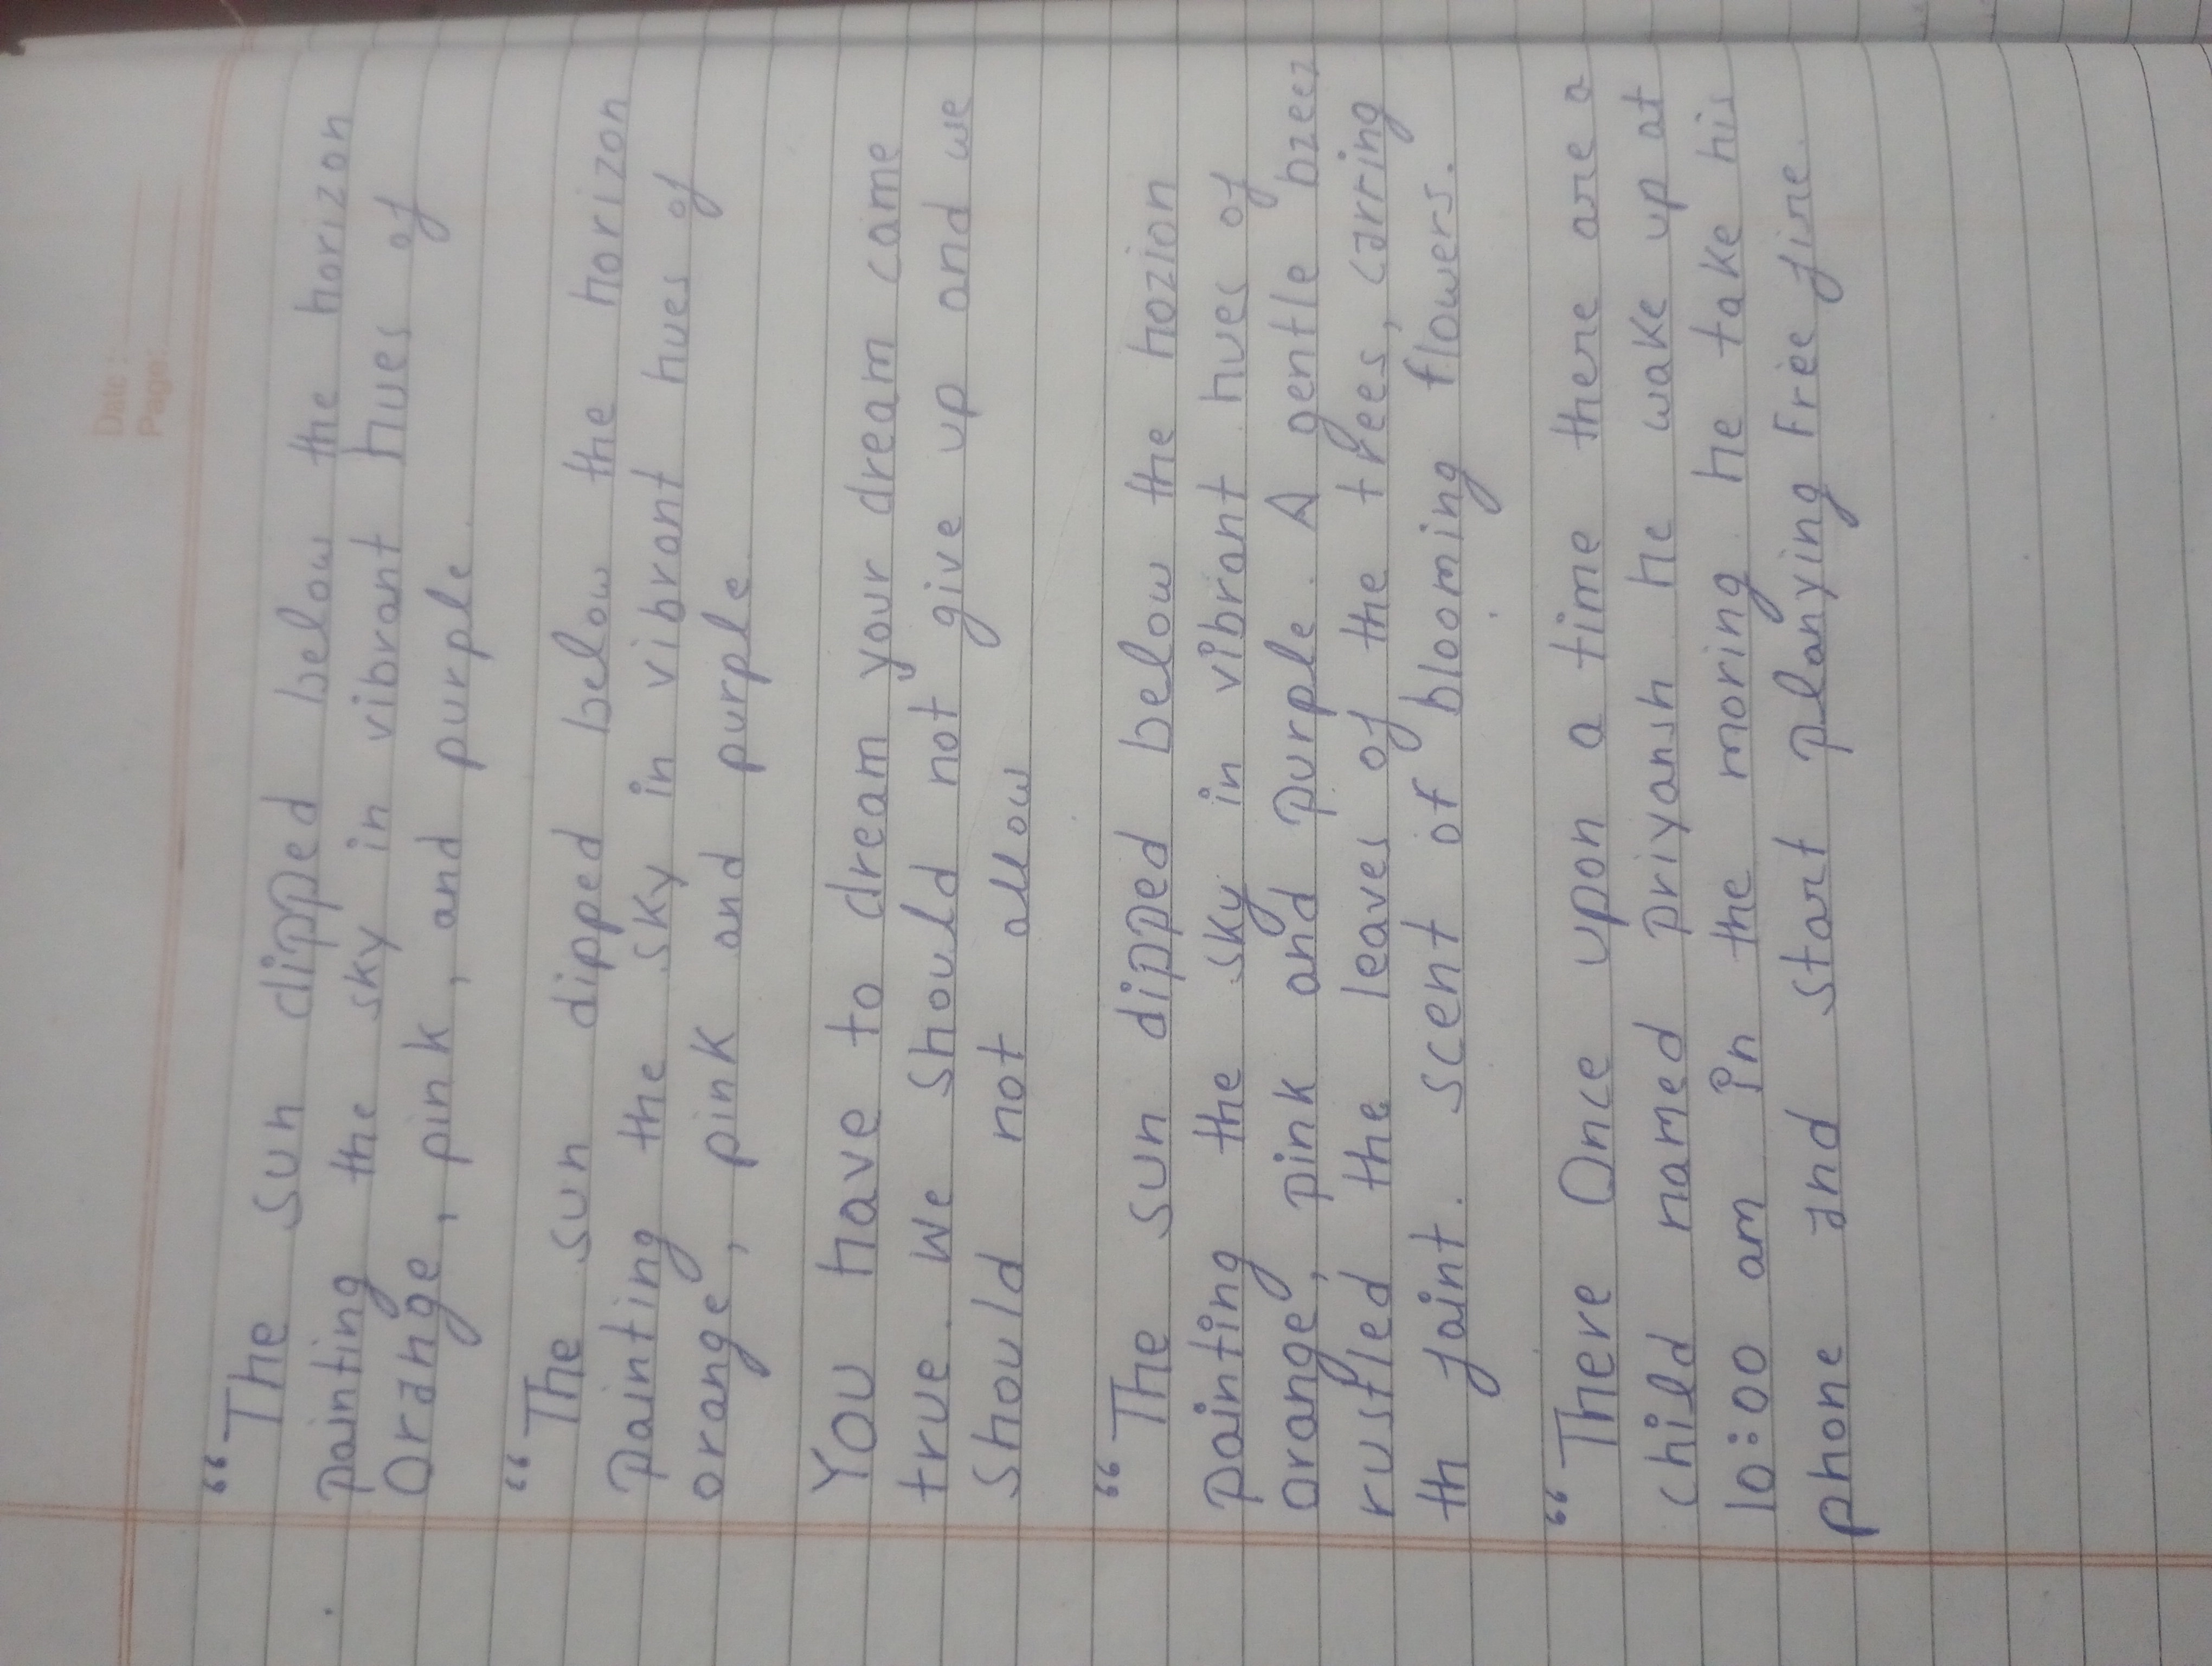 Date:
Page:
“The sun dipped below the horizon
painting the sky in vibrant hues of
Orange, pink, and purple.
“The sun dipped below the horizon
painting the sky in vibrant hues of
orange, pink and purple
You have to dream your dream came
true. We should not give up and we
should not allow
“The sun dipped below the hozion
painting the sky in vibrant hues of
orange, pink and purple. A gentle bzeez
rustled the leaves of the trees, carring
th faint. scent of blooming flowers.
“There Once upon a time there are a
child named priyansh he wake up at
10:00 am In the moring he take his
phone and start planying Free fire.